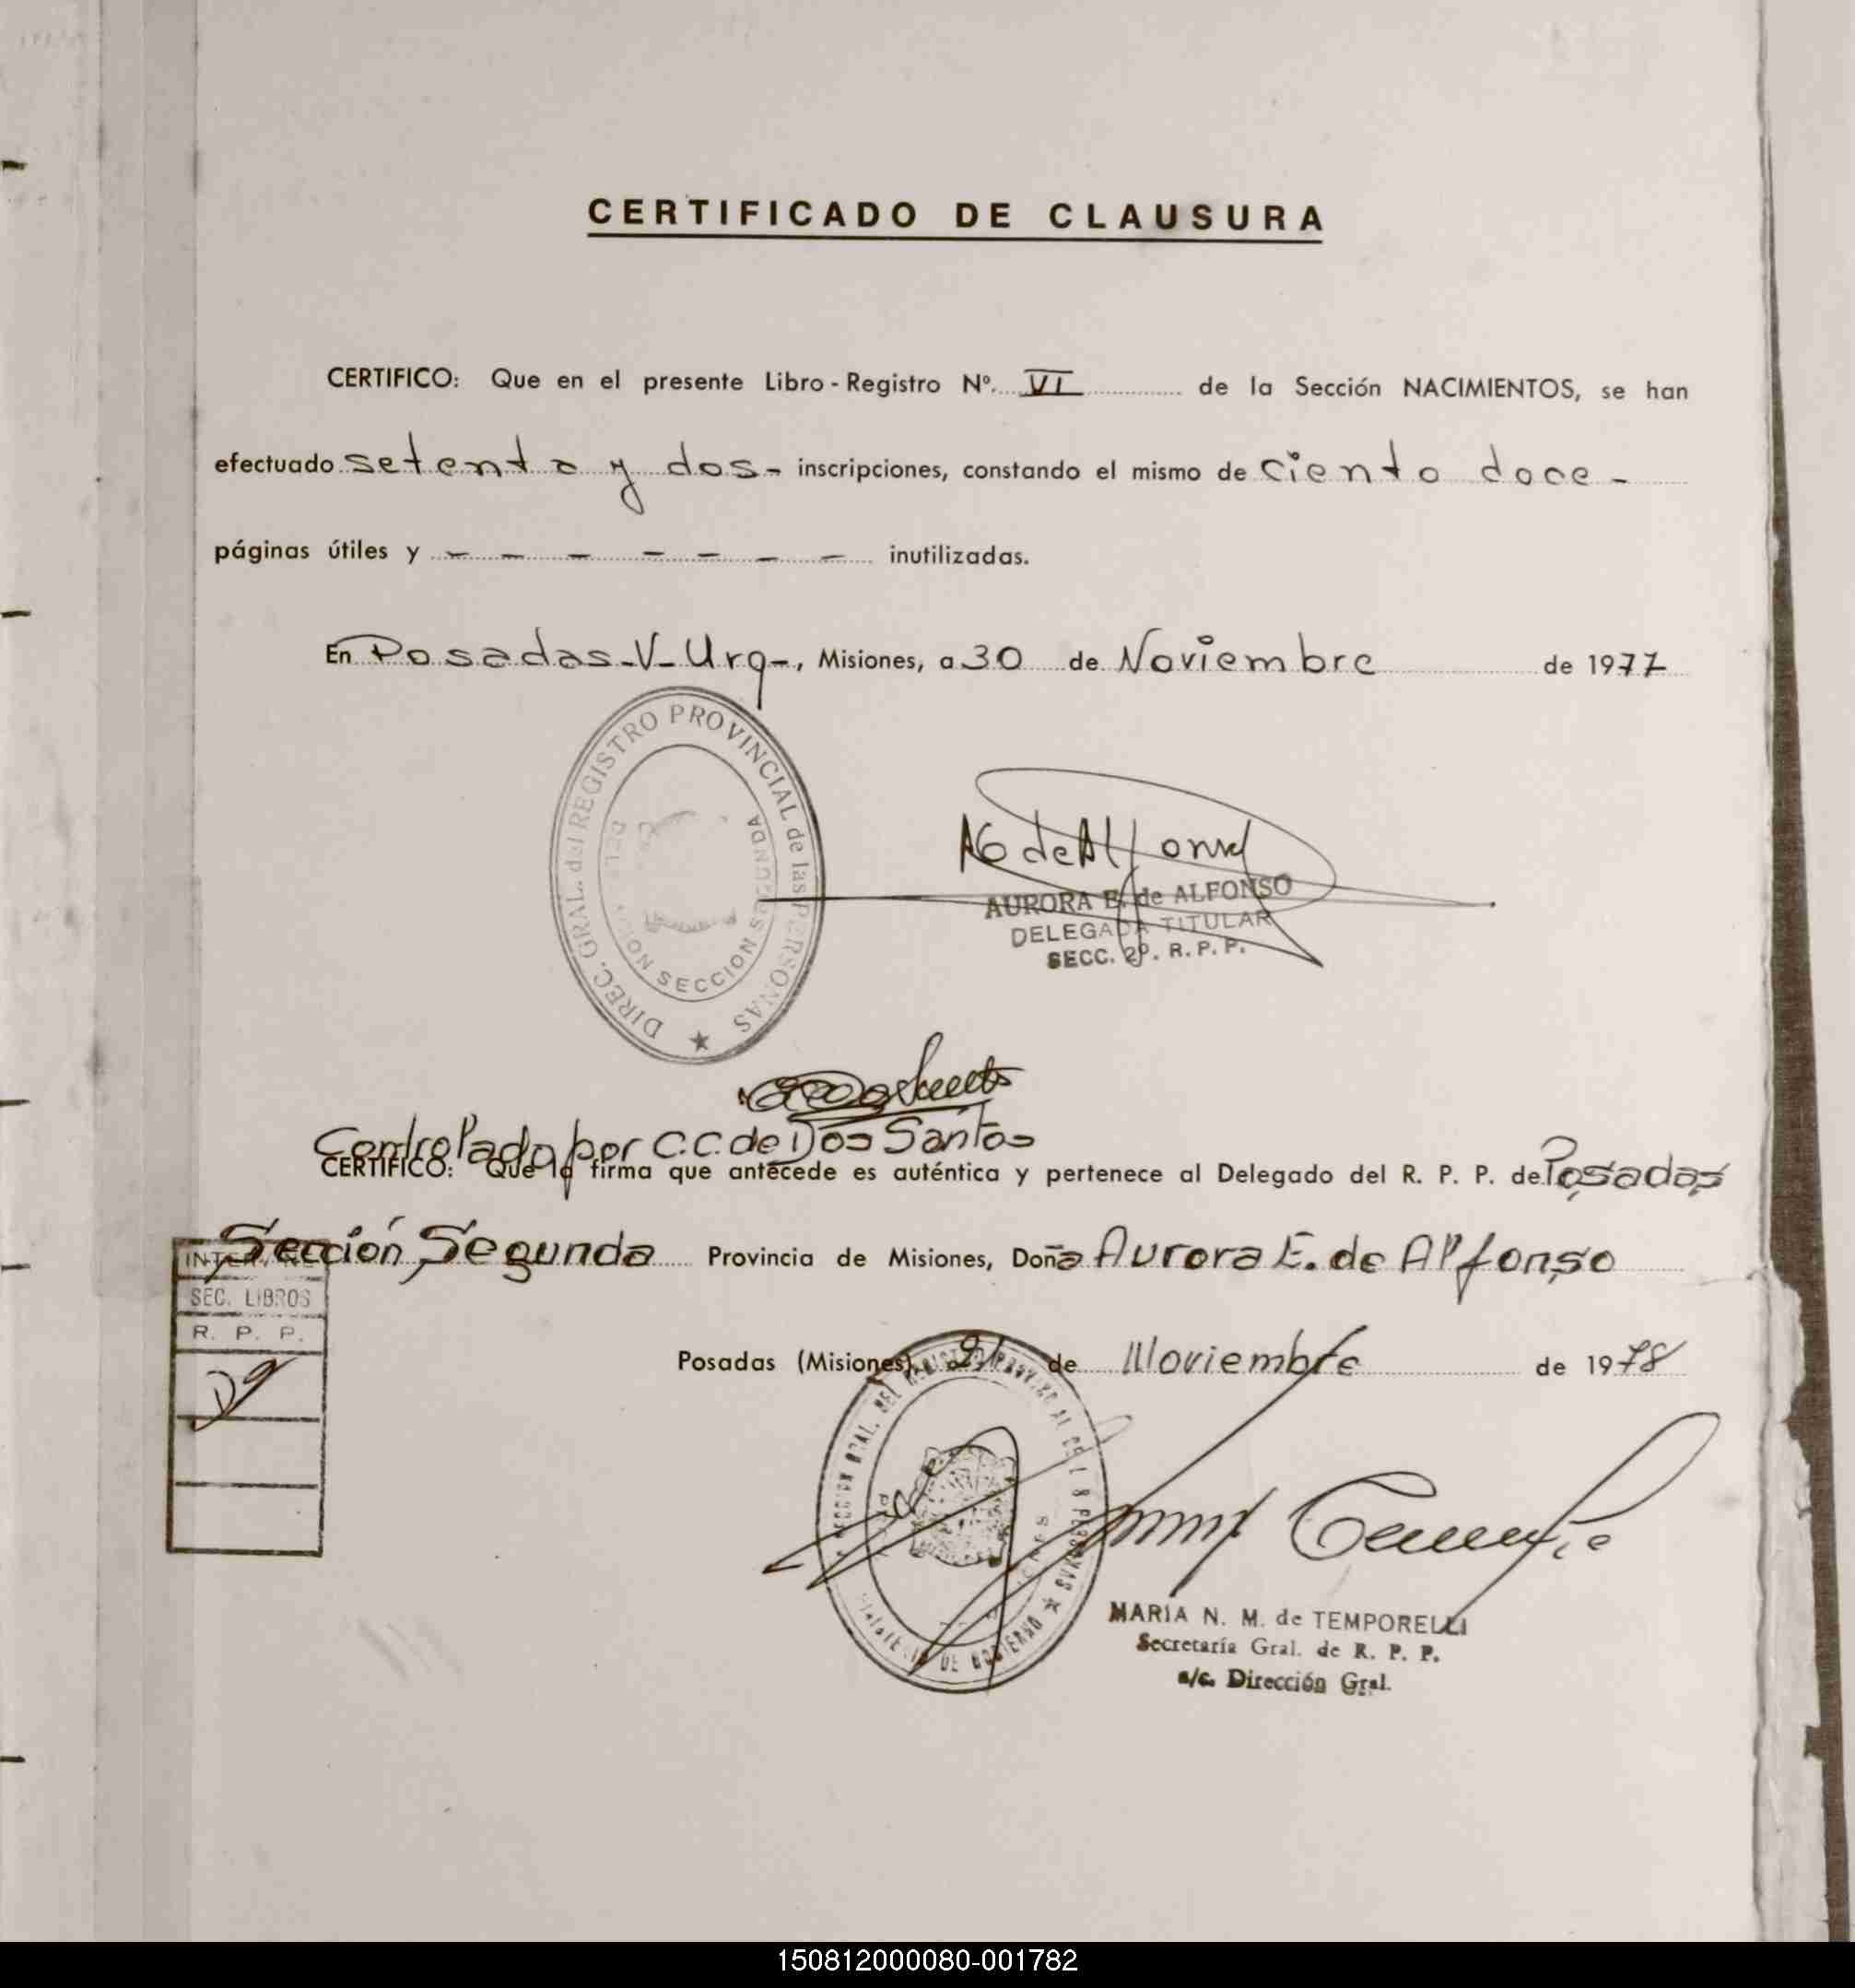 CERTIFICADO DE CLAUSURA
CERTIFICO: Que en el presente Libro-Registro Nº. VI de la Sección NACIMIENTOS, se han
efectuado setenta y dos- inscripciones, constando el mismo de ciento doce -
páginas útiles y - - - - - - - inutilizadas.
En Posadas-V-Urq-, Misiones, a 30 de Noviembre de 1977
DIREC. GRAL. del REGISTRO PROVINCIAL de las PERSONAS
SECCION SEGUNDA
AG de Alfonso
AURORA E. de ALFONSO
DELEGADA TITULAR
SECC. 2º. R. P. P.
Controlado por C.C. de Dos Santos
CERTIFICO: Que la firma que antecede es auténtica y pertenece al Delegado del R. P. P. de Posadas
Sección Segunda Provincia de Misiones, Doña Aurora E. de Alfonso
SEC. LIBROS
R. P. P.
Posadas (Misiones), de Noviembre de 1978
MARIA N. M. de TEMPORELLI
Secretaría Gral. de R. P. P.
a/c. Dirección Gral.
150812000080-001782